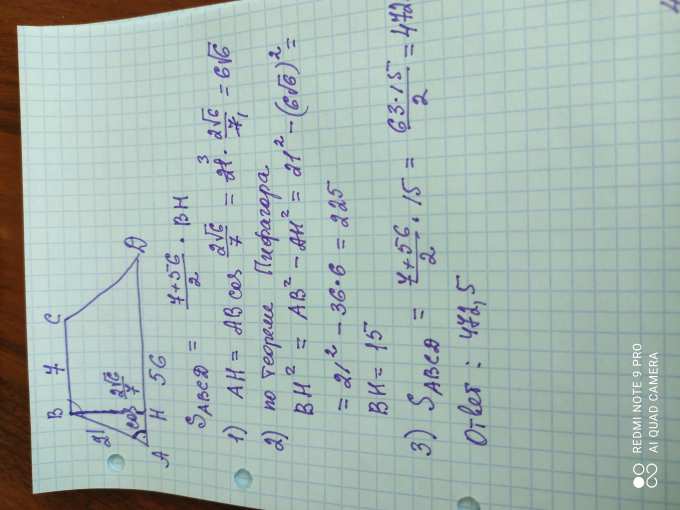 B 7 C
21
cos 2√6/7
A H 56 D
S_ABCD = (7+56)/2 · BH
1) AH = AB cos 2√6/7 = 21 · 2√6/7 = 6√6
3 1
2) по теореме Пифагора
BH² = AB² - AH² = 21² - (6√6)² =
= 21² - 36·6 = 225
BH = 15
3) S_ABCD = (7+56)/2 · 15 = (63·15)/2 = 472
Ответ: 472,5
REDMI NOTE 9 PRO
AI QUAD CAMERA